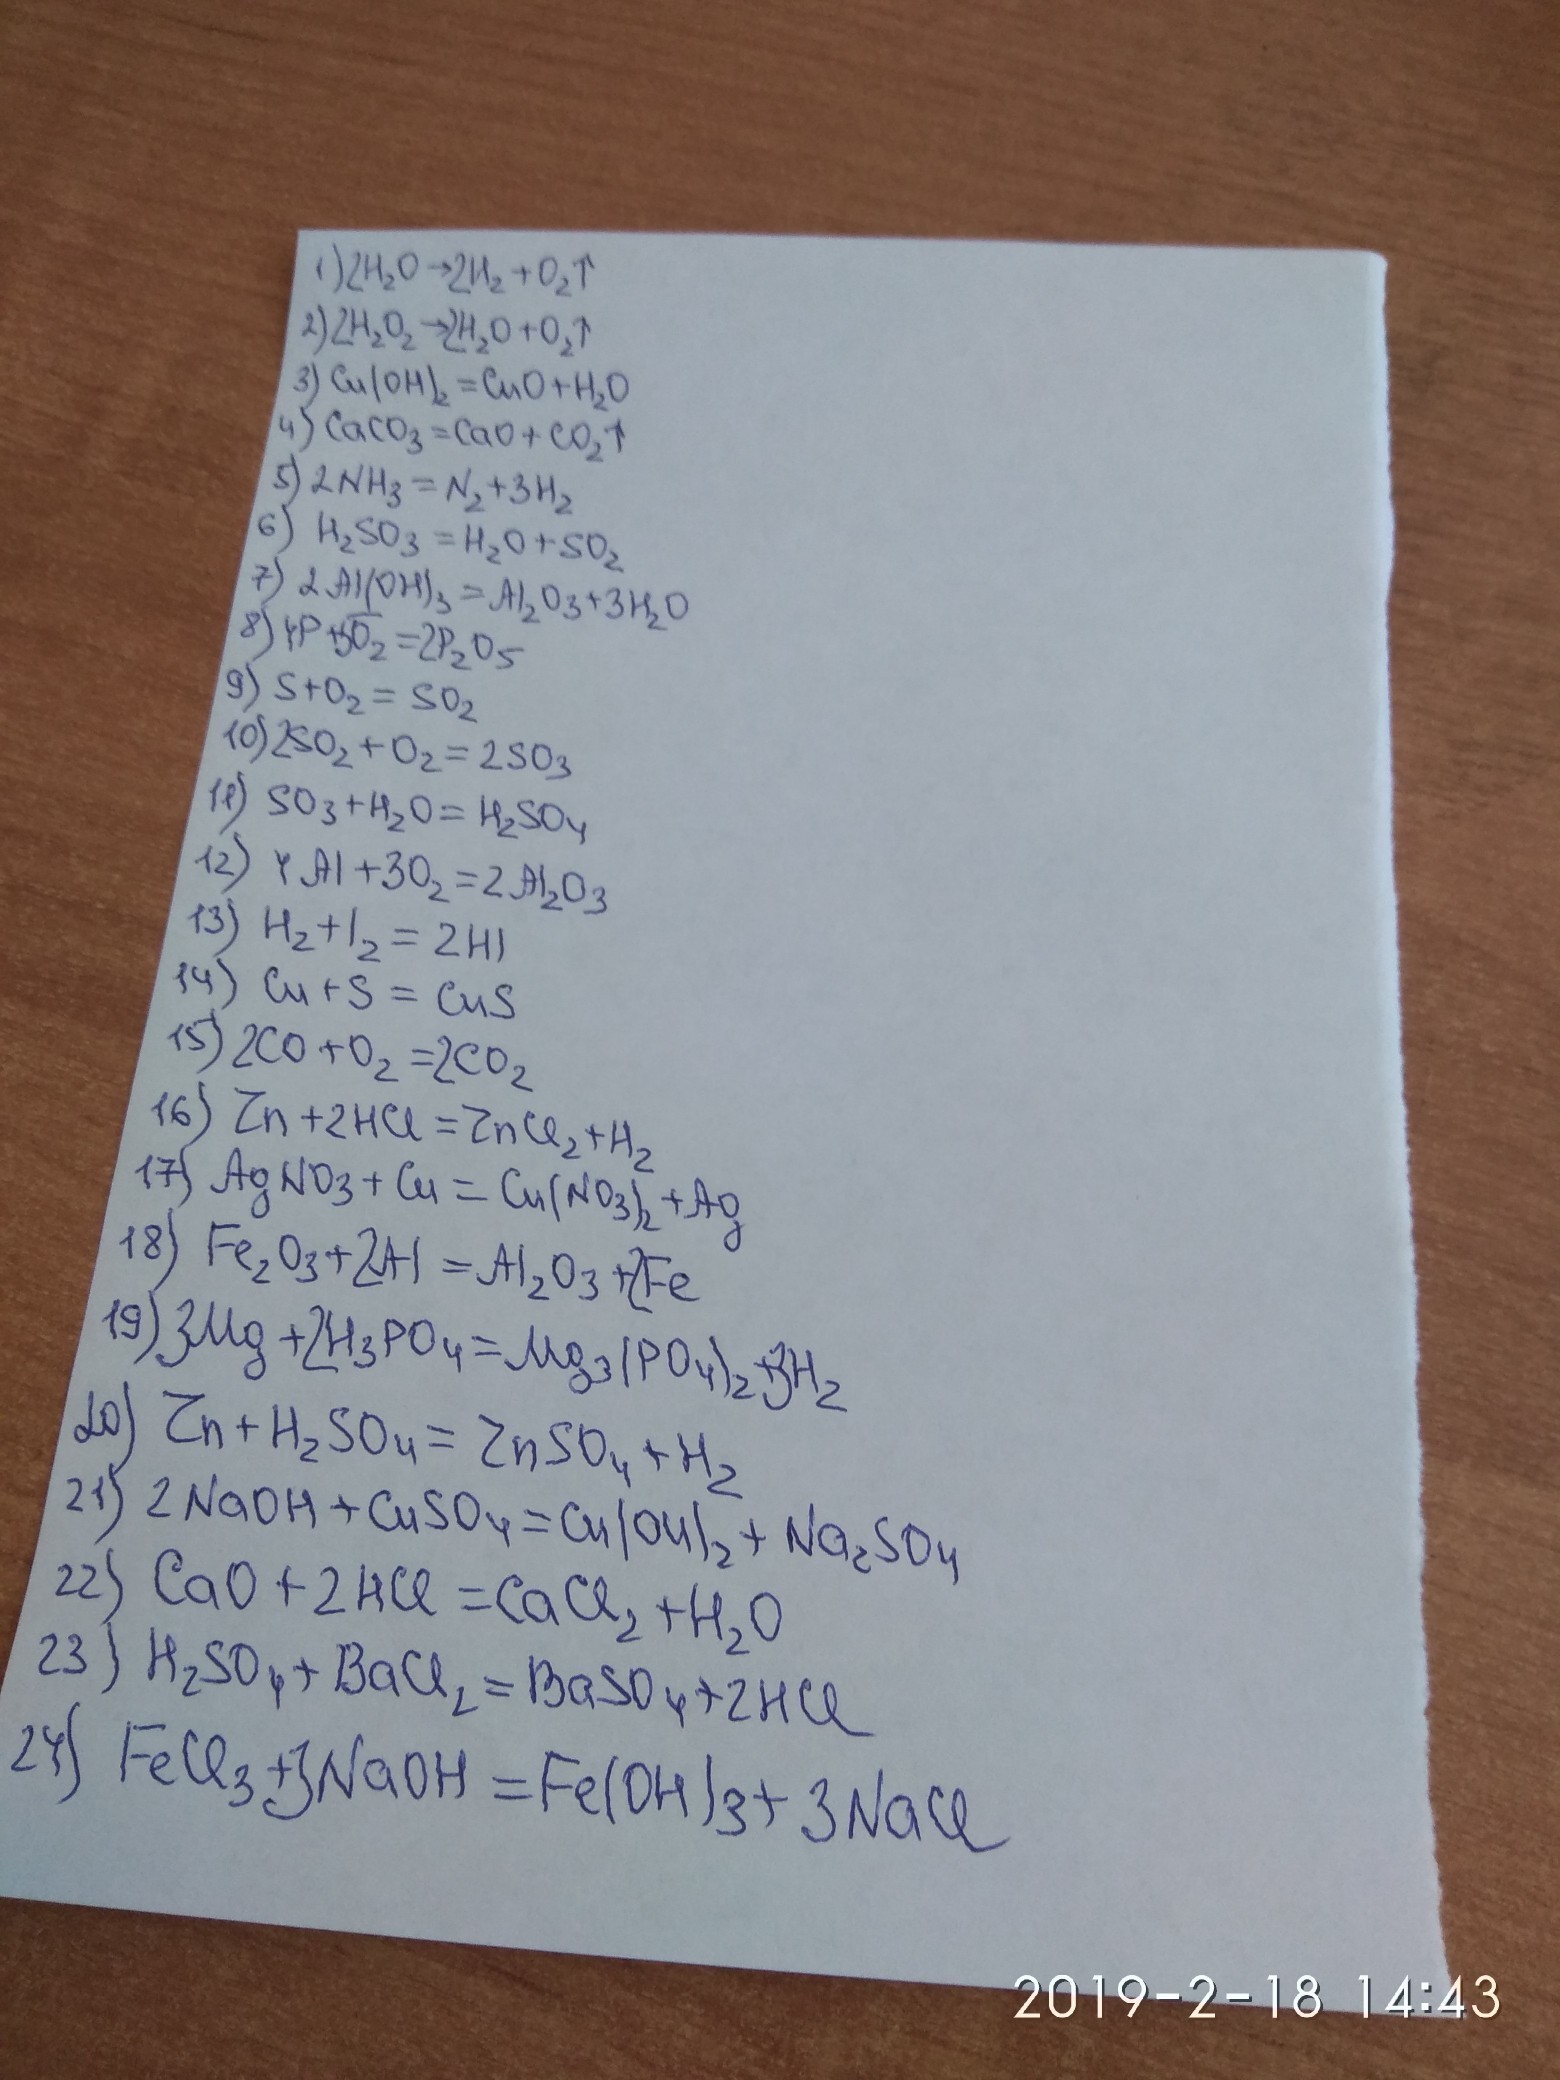 1) 2H₂O → 2H₂ + O₂↑
2) 2H₂O₂ → 2H₂O + O₂↑
3) Cu(OH)₂ = CuO + H₂O
4) CaCO₃ = CaO + CO₂↑
5) 2NH₃ = N₂ + 3H₂
6) H₂SO₃ = H₂O + SO₂
7) 2Al(OH)₃ = Al₂O₃ + 3H₂O
8) 4P + 5O₂ = 2P₂O₅
9) S + O₂ = SO₂
10) 2SO₂ + O₂ = 2SO₃
11) SO₃ + H₂O = H₂SO₄
12) 4Al + 3O₂ = 2Al₂O₃
13) H₂ + I₂ = 2HI
14) Cu + S = CuS
15) 2CO + O₂ = 2CO₂
16) Zn + 2HCl = ZnCl₂ + H₂
17) AgNO₃ + Cu = Cu(NO₃)₂ + Ag
18) Fe₂O₃ + 2Al = Al₂O₃ + 2Fe
19) 3Mg + 2H₃PO₄ = Mg₃(PO₄)₂ + 3H₂
20) Zn + H₂SO₄ = ZnSO₄ + H₂
21) 2NaOH + CuSO₄ = Cu(OH)₂ + Na₂SO₄
22) CaO + 2HCl = CaCl₂ + H₂O
23) H₂SO₄ + BaCl₂ = BaSO₄ + 2HCl
24) FeCl₃ + 3NaOH = Fe(OH)₃ + 3NaCl
2019-2-18 14:43